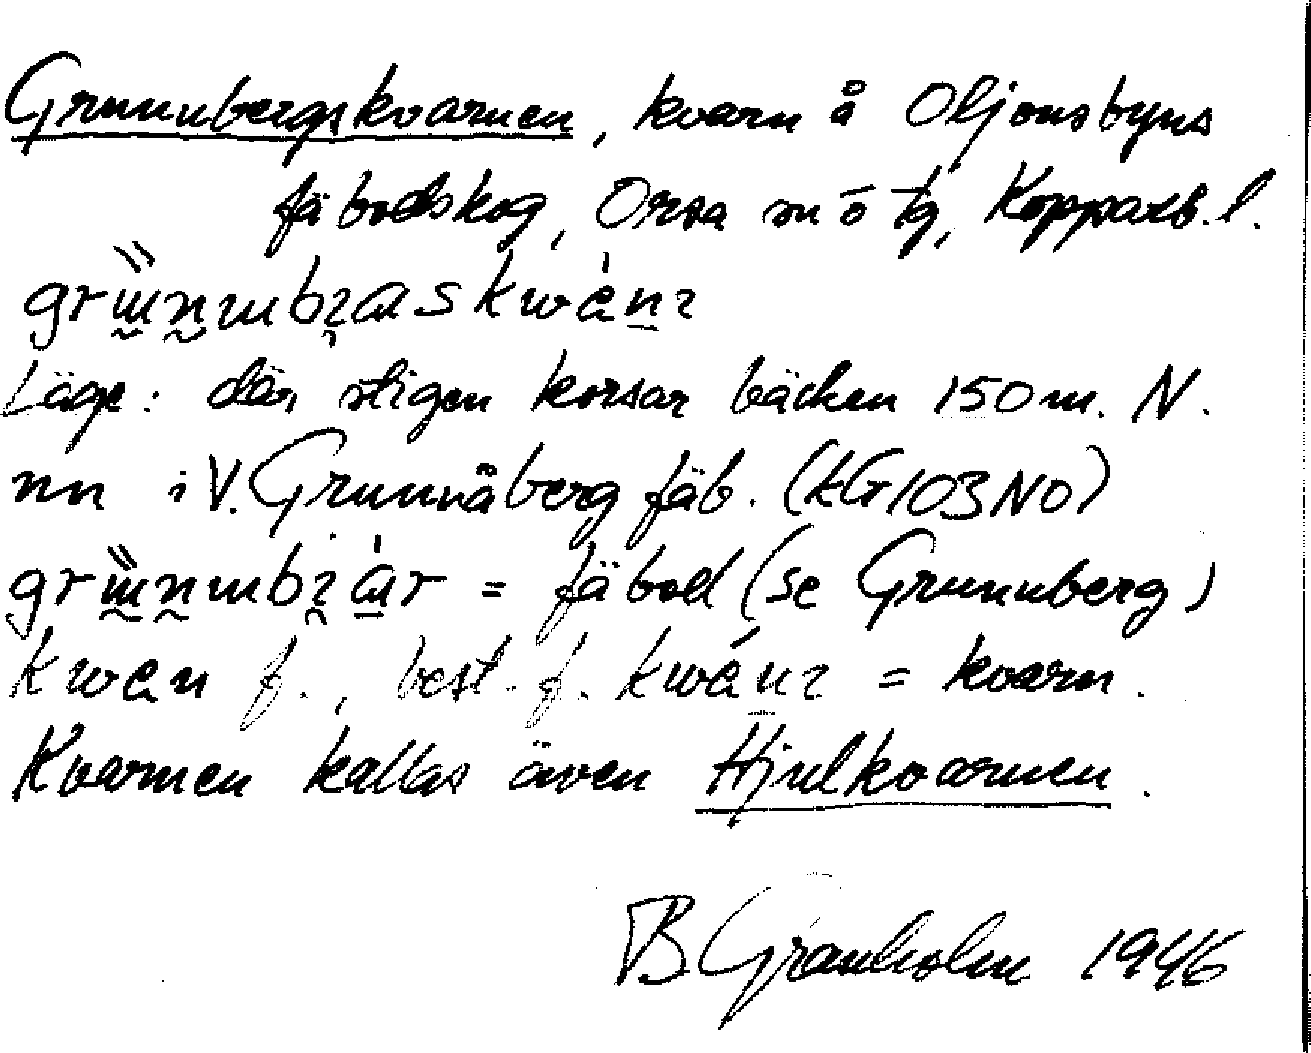 Grunnbergskvarnen, kvarn å Oljonsbyns
fäbodskog, Orsa sn o tg, Kopparb. l.
Läge: där stigen korsar bäcken 150 m. N.
nn i V. Grunnåberg fäb. (kG103NO)
= fäbod (se Grunnberg)
f., best. f. = kvarn.
Kvarnen kallas även Hjulkvarnen.
B Granholm 1946